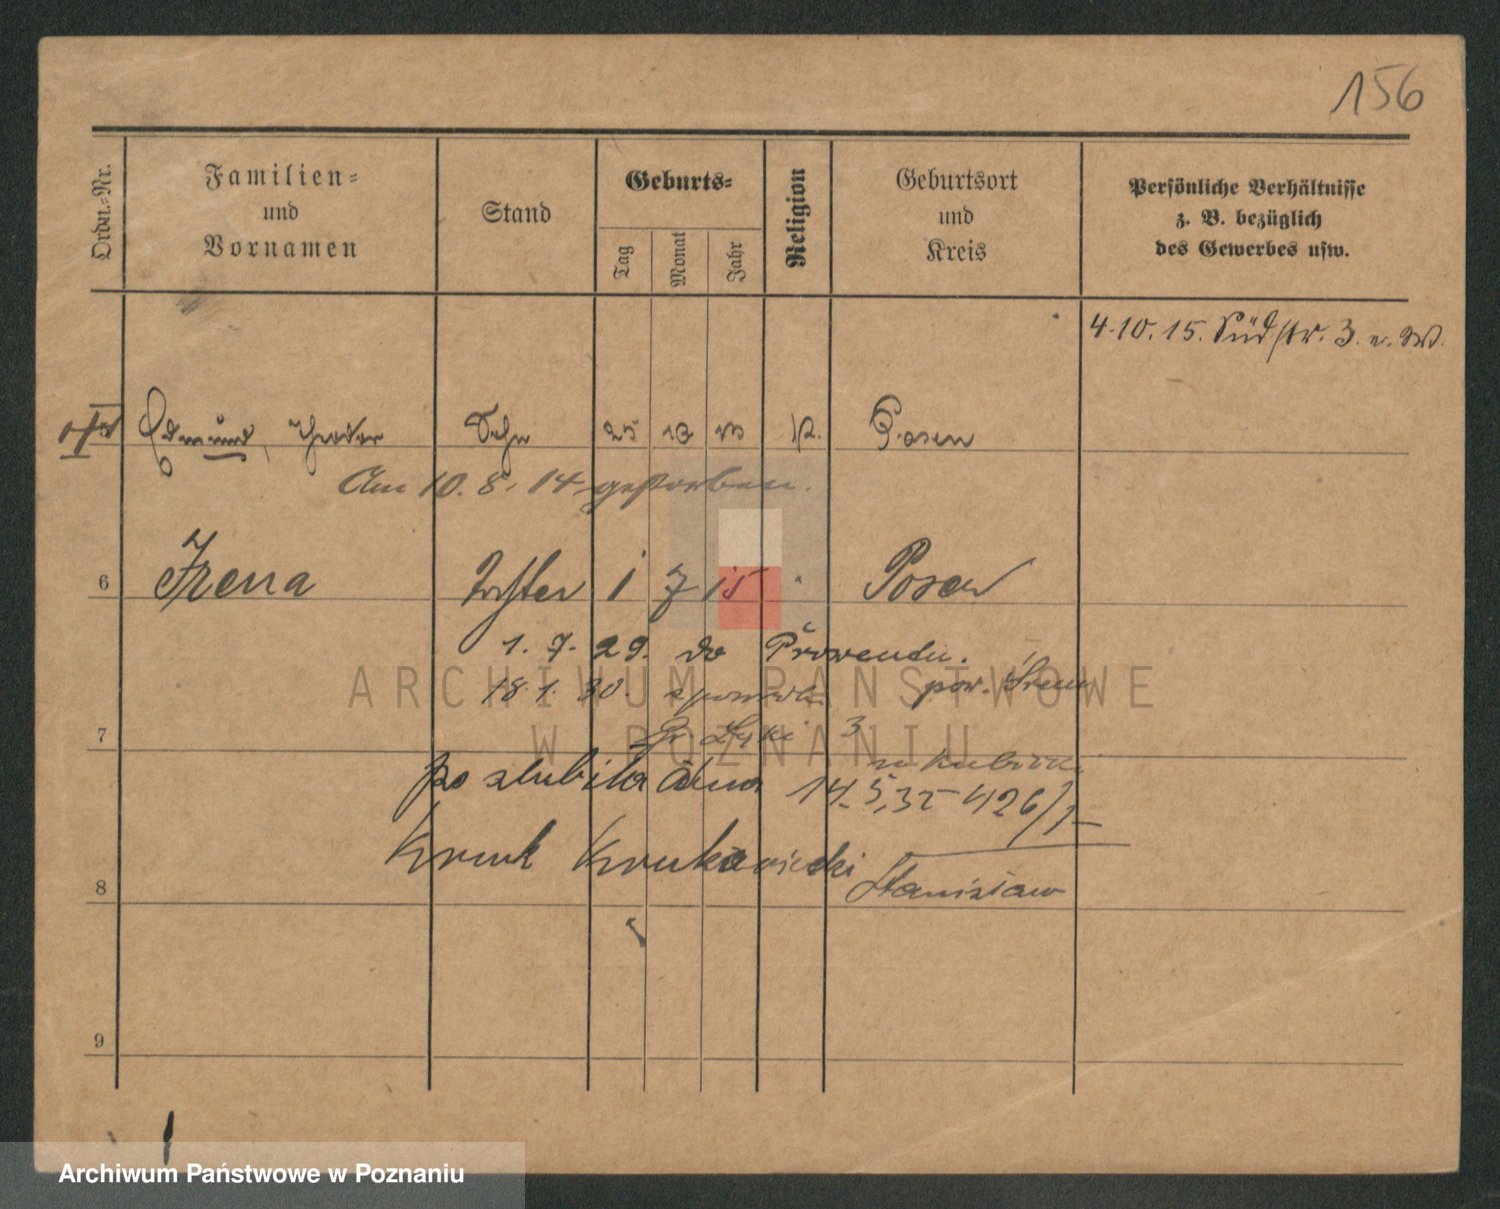 156
Ordn.-Nr.
Familien-
und
Vornamen
Stand
Geburts-
Tag
Monat
Jahr
Religion
Geburtsort
und
Kreis
Persönliche Verhältnisse
z. B. bezüglich
des Gewerbes usw.
4.10.15. Südstr. 3.
Edmund, Theodor Sohn 25 10 13 Posen
Am 10. 8. 14 gestorben.
6 Irena Tochter 1 7 15 Posen
1. 7. 29. do
18.1.30. pow. Śrem
7 3
poslubiła dnia 14.5.35 426/1
Kruk Krukowiecki
8 Stanisław
9
ARCHIWUM PAŃSTWOWE
W POZNANIU
Archiwum Państwowe w Poznaniu